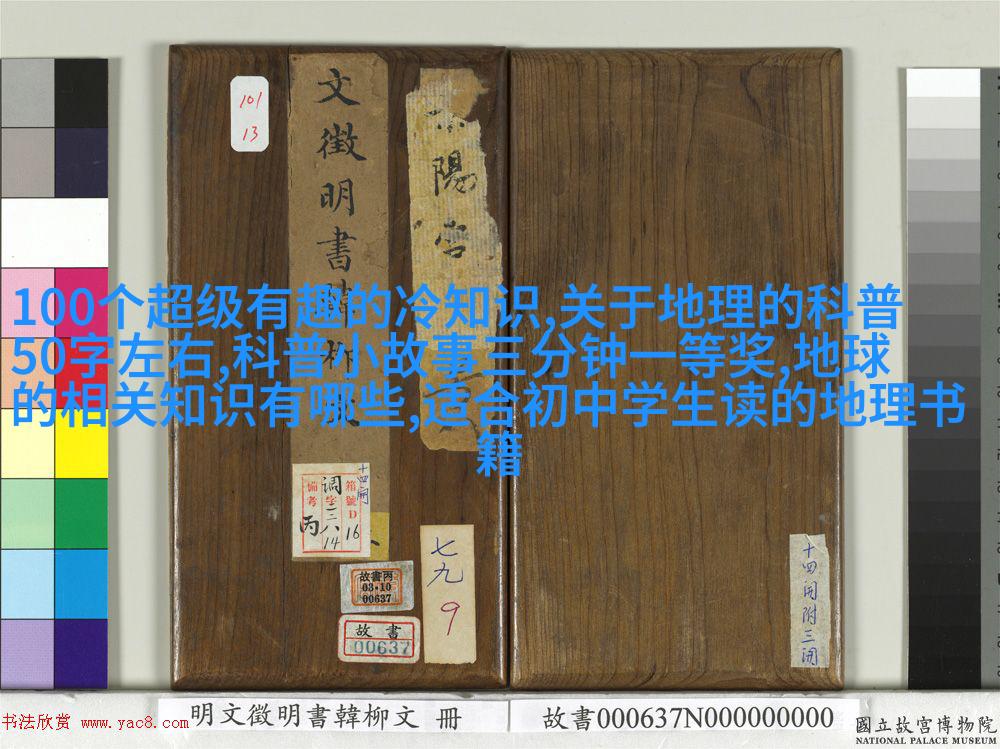 101
13
文徵明書韓柳文
陽宮
100个超级有趣的冷知识,关于地理的科普
50字左右,科普小故事三分钟一等奖,地球
的相关知识有哪些,适合初中学生读的地理书
籍
十四開
箱號D16
调字三八14
備考丙
故書丙
03-10
00637
故書
00637
七九
9
十四開附三開
書法欣赏 www.yac8.com
明文徵明書韓柳文 冊
故書000637N000000000
國立故宮博物院
NATIONAL PALACE MUSEUM